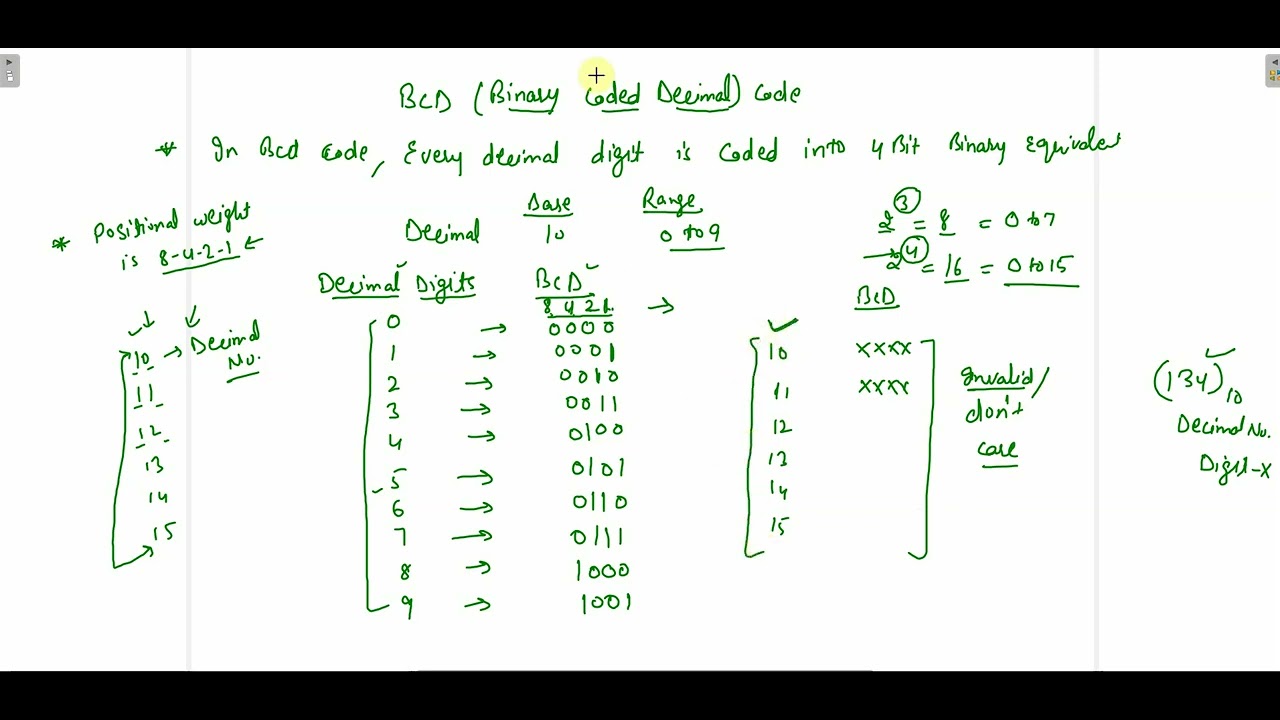 BCD (Binary Coded Decimal) Code
* In Bcd code, Every decimal digit is coded into 4 Bit Binary Equivalent
* Positional weight
is 8-4-2-1 ←
Base Range
Decimal 10 0 to 9
2³ = 8 = 0 to 7
→ 2⁴ = 16 = 0 to 15
Decimal Digits BCD
8 4 2 1 →
0 → 0000
1 → 0001
2 → 0010
3 → 0011
4 → 0100
5 → 0101
6 → 0110
7 → 0111
8 → 1000
9 → 1001
10 → Decimal
No.
11
12
13
14
15
BCD
10 xxxx
11 xxxx
12
13
14
15
Invalid/
don't
care
(134)₁₀
Decimal No.
Digit-x